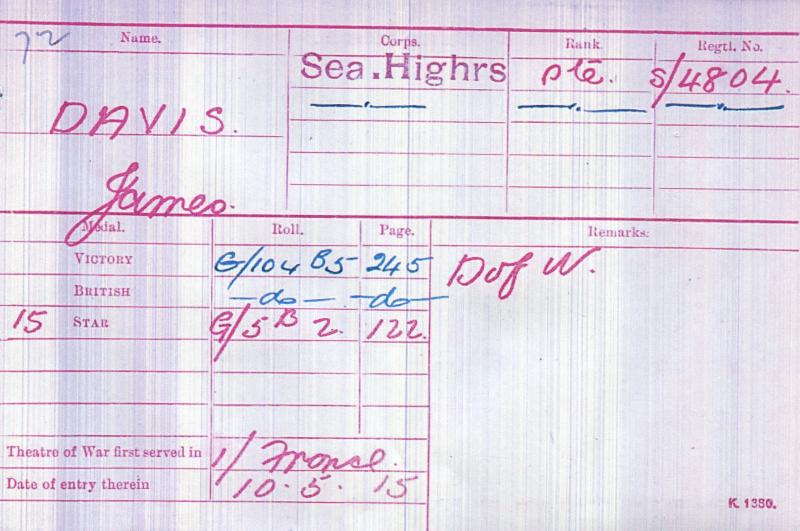 72 Name. Corps. Rank. Regtl. No.
Sea.Highrs Pte. S/4804.
DAVIS.
James.
Medal. Roll. Page. Remarks.
VICTORY G/104 B5 245 D of W.
BRITISH —do— —do—
15 STAR G/5 B 2. 122.
Theatre of War first served in 1/ France.
Date of entry therein 10.5.15
K. 1380.